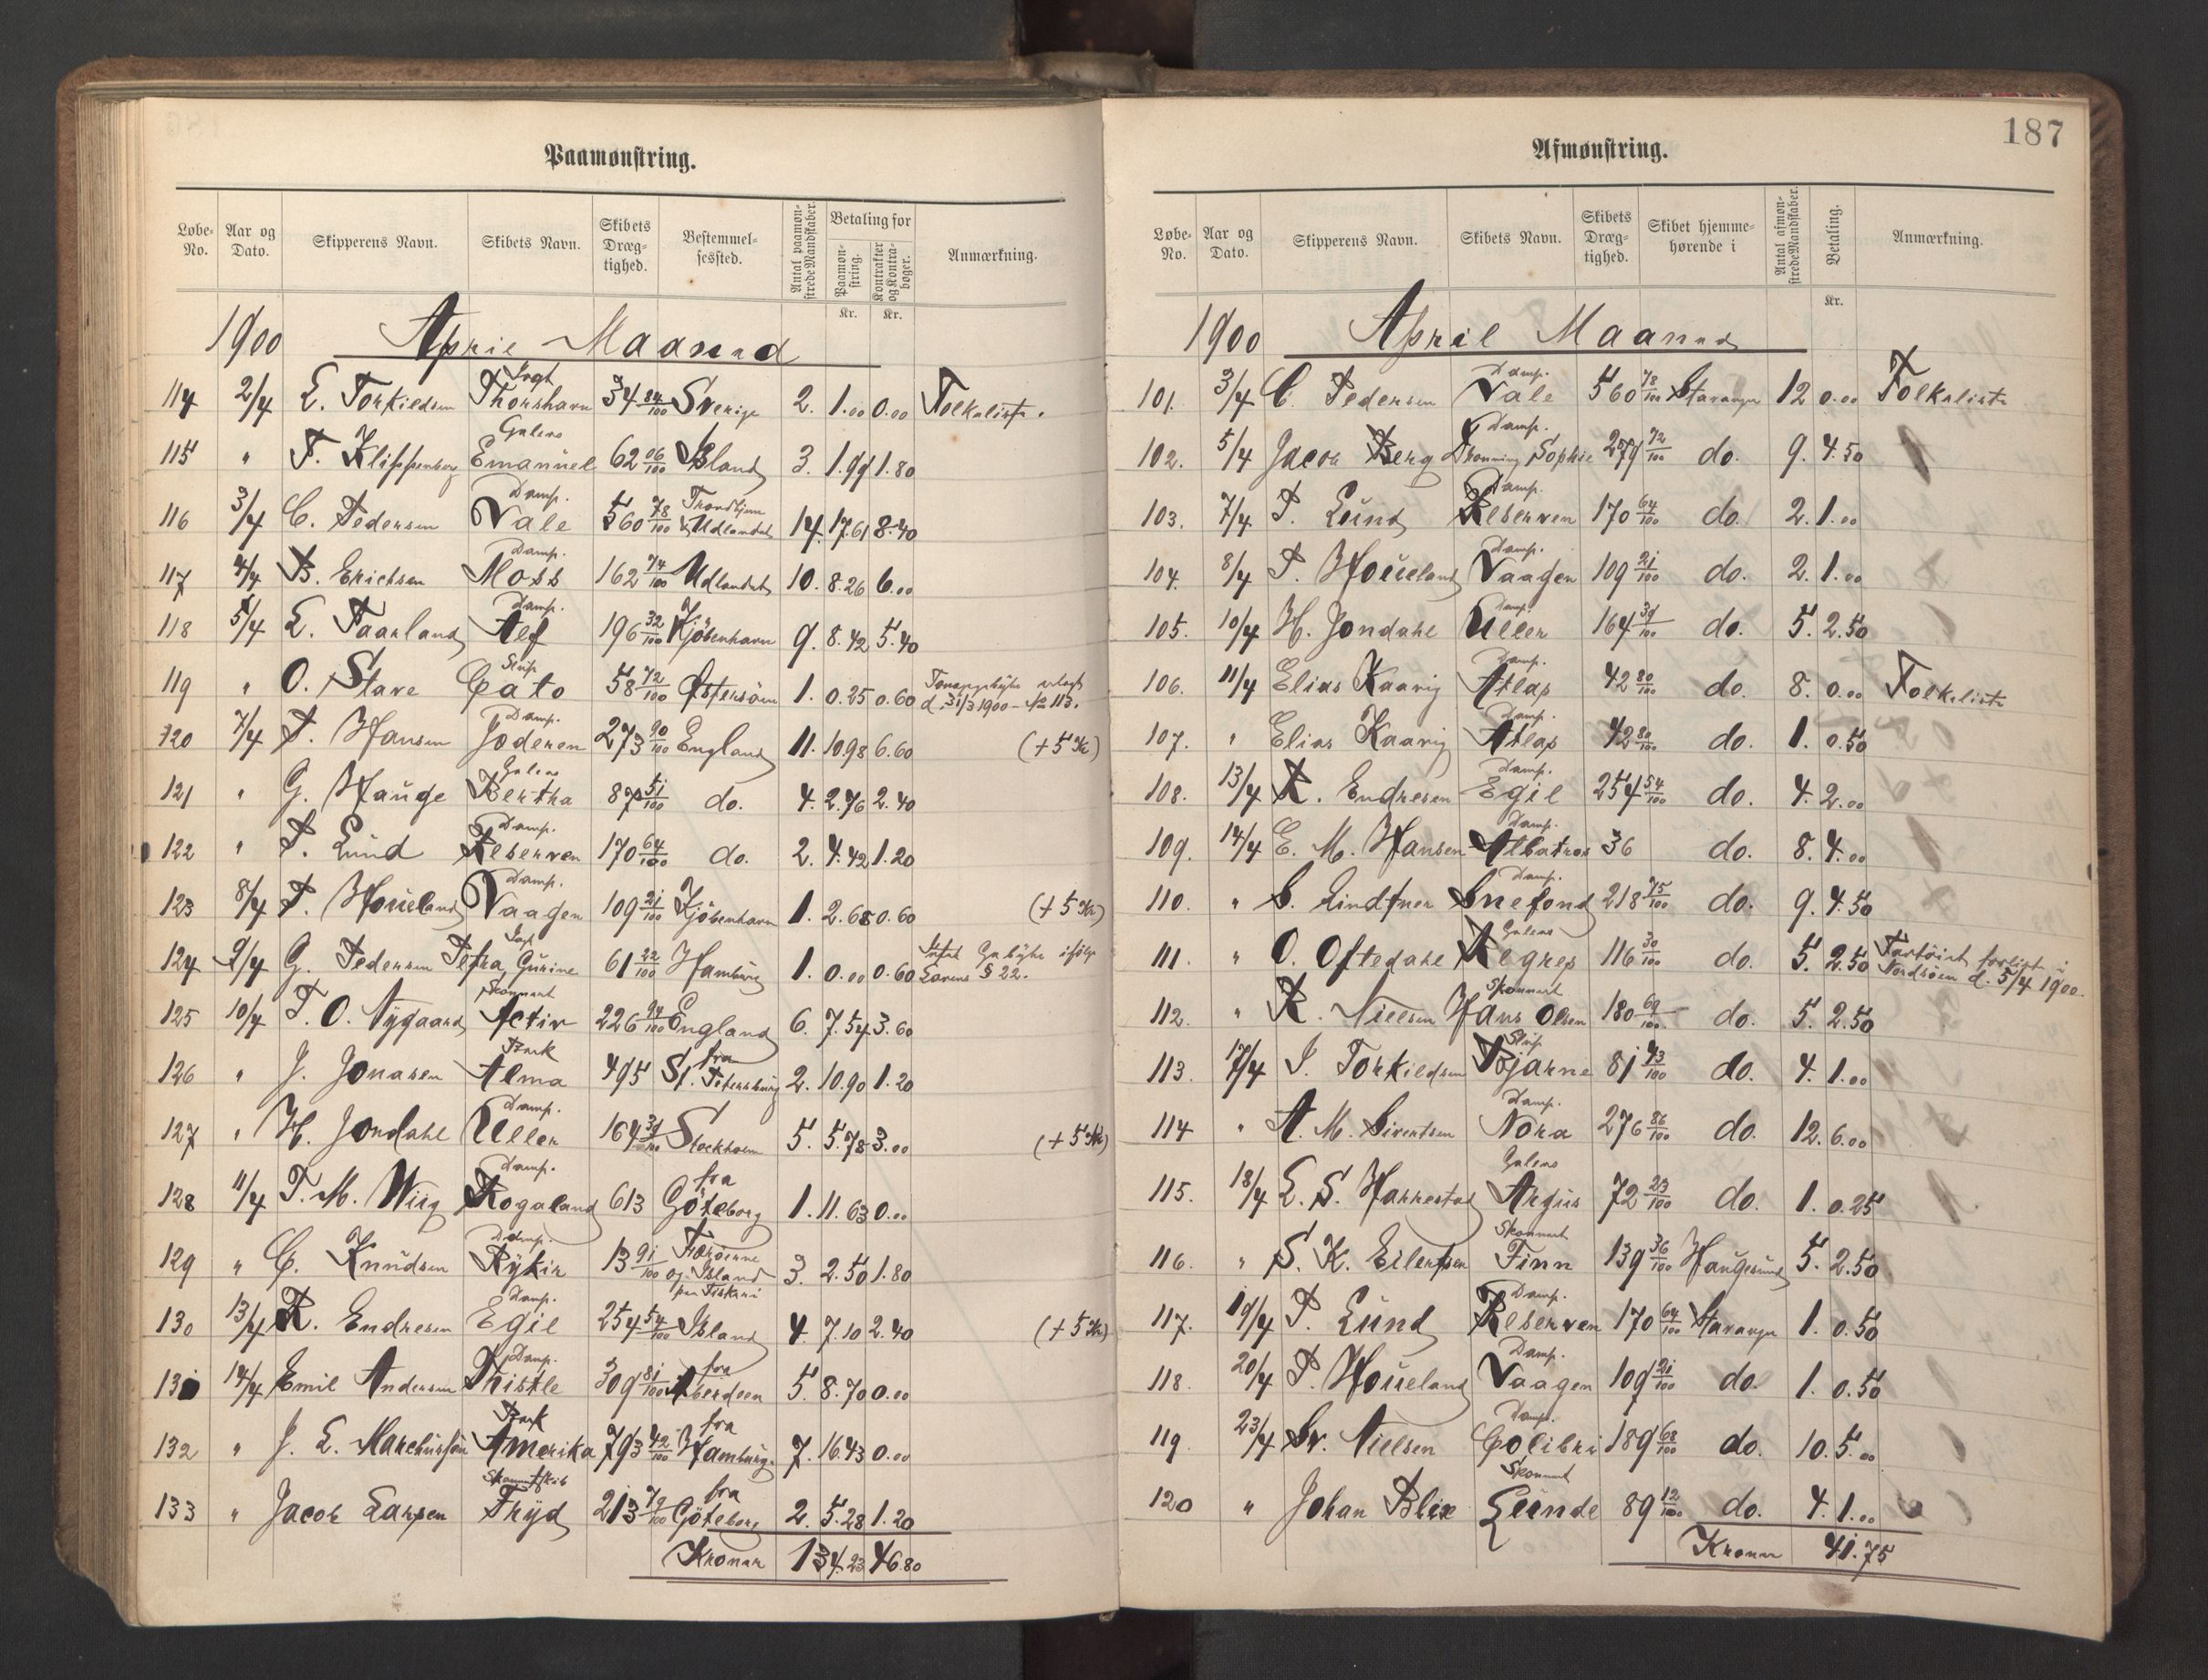 Paamønstring.
Løbe-No. Aar og Dato. Skipperens Navn. Skibets Navn. Skibets Dræg-tighed. Bestemmel-sessted. Antal paamøn-strede Mandskaber. Betaling for Paamøn-string. Kr. Kontrakter og Kontra-bøger. Kr. Anmærkning.
1900 April Maaned
114 2/4 L. Torkildsen Jagt Thorshavn 34 84/100 Sverige 2. 1.00 0.00 Folkeliste.
115 " F. Klippenberg Galeas Emanuel 62 06/100 Island 3. 1.99 1.80
116 3/4 C. Pedersen Damp. Vale 560 78/100 Trondhjem & Udlandet 14. 17.61 8.40
117 4/4 B. Erichsen Damp. Moss 162 74/100 Udlandet 10. 8.26 6.00
118 5/4 L. Paarland Damp. Alf 196 32/100 Kjøbenhavn 9. 8.42 5.40
119 " O. Stave Slup Cato 58 72/100 Østersøen 1. 0.25 0.60 d. 31/3 1900 - No 113.
120 7/4 P. Hansen Damp. Jæderen 273 90/100 England 11. 10.98 6.60 (+ 5 Kr)
121 " G. Hauge Galeas Bertha 87 51/100 do. 4. 2.76 2.40
122 " P. Lund Damp. Reserven 170 64/100 do. 2. 4.42 1.20
123 8/4 P. Houeland Damp. Vaagen 109 21/100 Kjøbenhavn 1. 2.68 0.60 (+ 5 Kr)
124 9/4 G. Pedersen Jagt Petra Gurine 61 22/100 Hamburg 1. 0.00 0.60 Intet Gebyhr ifølge Lovens § 22.
125 10/4 T. O. Nygaard Skonnert Activ 226 94/100 England 6. 7.54 3.60
126 " J. Jonasen Bark Alma 495 fra St. Petersburg 2. 10.90 1.20
127 " H. Jondahl Damp. Uller 164 39/100 Stockholm 5. 5.78 3.00 (+ 5 Kr)
128 11/4 T. M. Wiig Damp. Rogaland 613 fra Göteborg 1. 11.63 0.00
129 " C. Knudsen Damp. Rykir 13 91/100 Færøerne og Island paa Fiskeri 3. 2.50 1.80
130 13/4 R. Endresen Damp. Egil 254 54/100 Island 4. 7.10 2.40 (+ 5 Kr)
131 14/4 Emil Andersen Damp. Thistle 309 81/100 fra Aberdeen 5. 8.70 0.00
132 " J. L. Marcussen Bark Amerika 793 42/100 fra Hamburg. 7. 16.43 0.00
133 " Jacob Larsen Skonnertskib Fryd 213 79/100 fra Göteborg 2. 5.28 1.20
Kroner 134.23 46.80
187
Afmønstring.
Løbe-No. Aar og Dato. Skipperens Navn. Skibets Navn. Skibets Dræg-tighed. Skibet hjemme-hørende i Antal afmøn-strede Mandskaber. Betaling. Kr. Anmærkning.
1900 April Maaned
101. 3/4 C. Pedersen Damp. Vale 560 78/100 Stavanger 12 0.00 Folkeliste
102. 5/4 Jacob Berg Damp. Dronning Sophie 279 72/100 do. 9. 4.50
103. 7/4 P. Lund Damp. Reserven 170 64/100 do. 2. 1.00
104. 8/4 P. Houeland Damp. Vaagen 109 21/100 do. 2. 1.00
105. 10/4 H. Jondahl Damp. Uller 164 39/100 do. 5. 2.50
106. 11/4 Elias Kaavig Damp. Atlas 42 80/100 do. 8. 0.00 Folkeliste
107. " Elias Kaavig Damp. Atlas 42 80/100 do. 1. 0.50
108. 13/4 R. Endresen Damp. Egil 254 54/100 do. 4. 2.00
109. 14/4 E. M. Hansen Damp. Albatros 36 do. 8. 4.00
110. " S. Lindtner Damp. Snefond 218 75/100 do. 9. 4.50
111. " O. Oftedahl Galeas Regnes 116 30/100 do. 5. 2.50 Fartøiet forlist i Nordsøen d. 5/4 1900.
112. " R. Nielsen Skonnert Hans Olsen 180 69/100 do. 5. 2.50
113. 17/4 I. Torkildsen Slup Bjarne 81 43/100 do. 4. 1.00
114 " A. M. Sivertsen Damp. Nora 276 86/100 do. 12. 6.00
115. 18/4 L. S. Harrestad Galeas Argus 72 23/100 do. 1. 0.25
116. " S. K. Eilertsen Skonnert Finn 139 36/100 Haugesund 5. 2.50
117. 19/4 P. Lund Damp. Reserven 170 64/100 Stavanger 1. 0.50
118. 20/4 P. Houeland Damp. Vaagen 109 21/100 do. 1. 0.50
119. 23/4 Sv. Nielsen Damp. Colibri 189 68/100 do. 10. 5.00
120 " Johan Blix Skonnert Lünde 89 12/100 do. 4. 1.00
Kroner 41.75